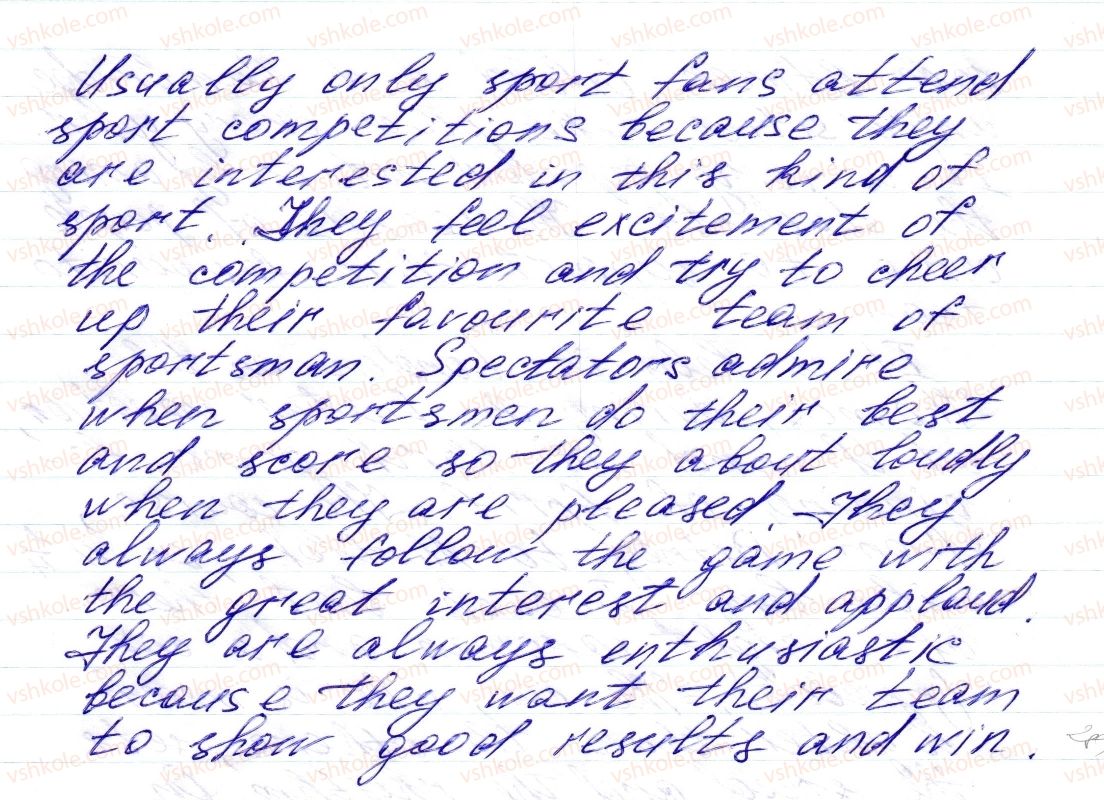 Usually only sport fans attend
sport competitions because they
are interested in this kind of
sport. They feel excitement of
the competition and try to cheer
up their favourite team of
sportsman. Spectators admire
when sportsmen do their best
and score so they about loudly
when they are pleased. They
always follow the game with
the great interest and applaud.
They are always enthusiastic
because they want their team
to show good results and win.
vshkole.com